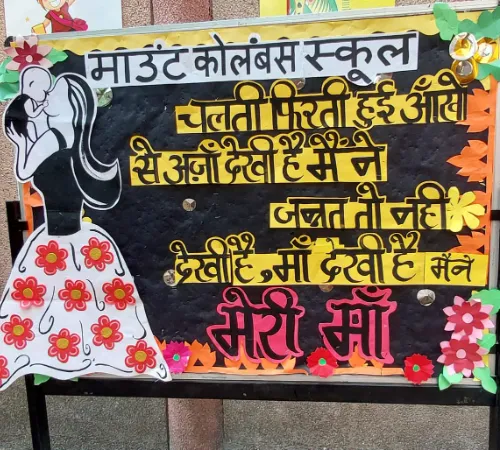 माउंट कोलंबस स्कूल
चलती फिरती हुई आँखो
से अजाँ देखी है मैंने
जन्नत तो नही
देखी है, माँ देखी है मैंने
मेरी माँ